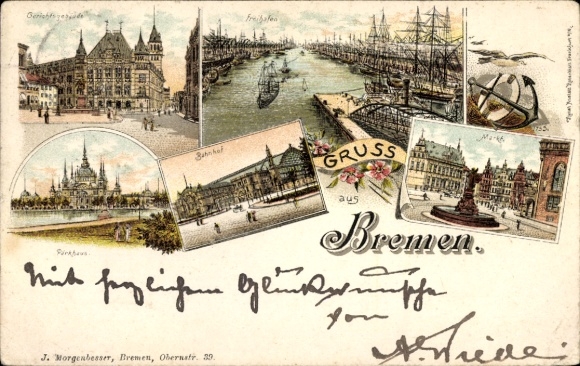 Gerichtsgebäude
Freihafen
Bahnhof
Markt
Parkhaus
GRUSS
aus
Bremen.
Mit herzlichem Glückwunsche
von
A. Wiede
J. Morgenbesser, Bremen, Obernstr. 39.